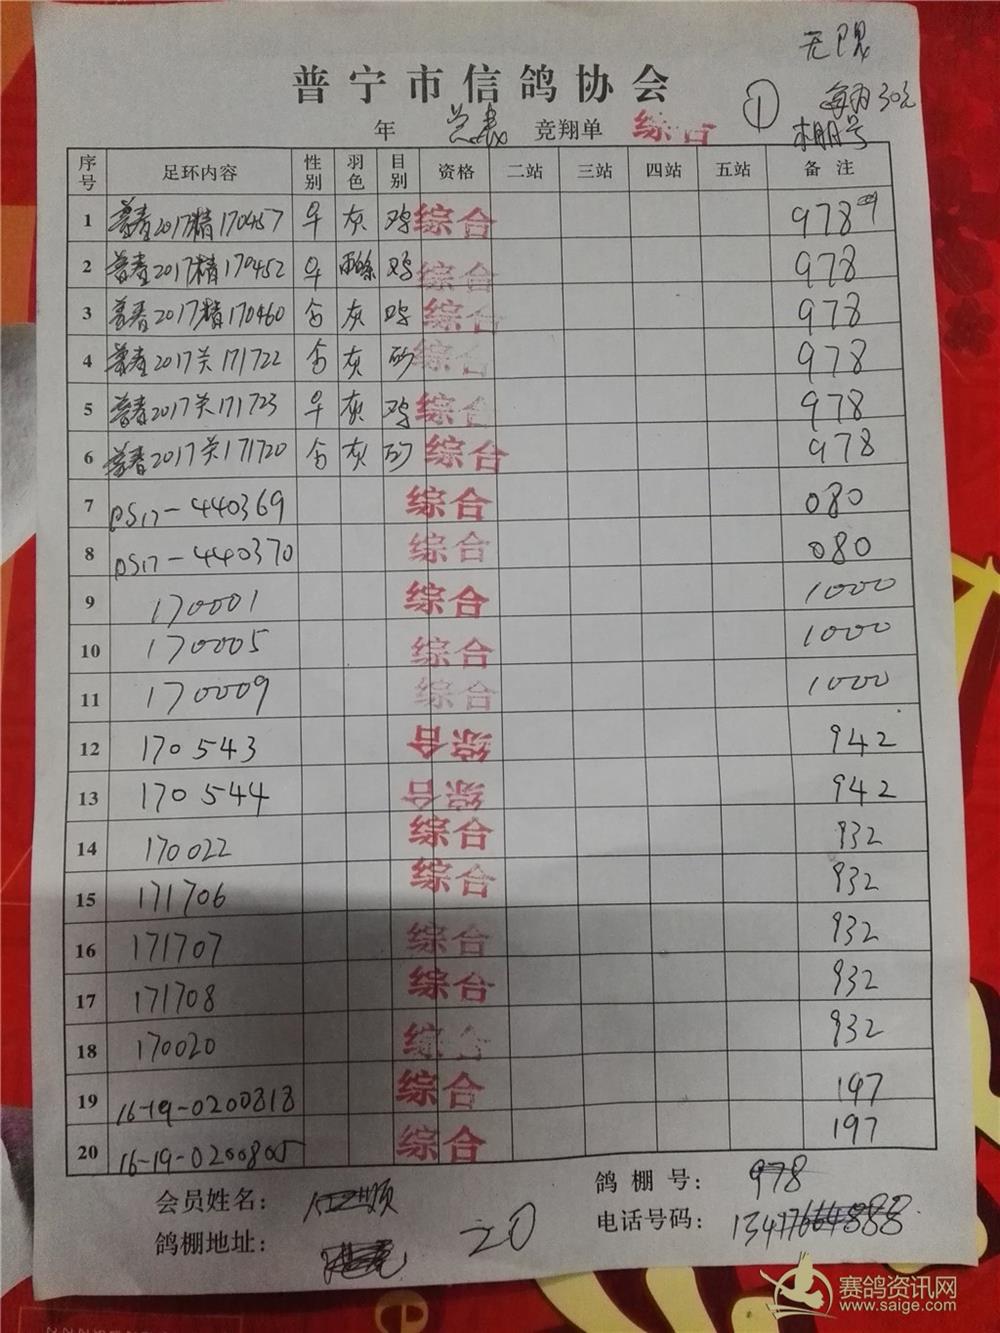 无限
普宁市信鸽协会
① 每羽30元
年 总表 竞翔单 综合 棚号
序号 足环内容 性别 羽色 目别 资格 二站 三站 四站 五站 备注
1 普春2017精170457 灰 鸡 综合 978
2 普春2017精170452 鸡 综合 978
3 普春2017精170460 灰 鸡 综合 978
4 普春2017关171722 灰 砂 综合 978
5 普春2017关171723 灰 鸡 综合 978
6 普春2017关171720 灰 砂 综合 978
7 DS17-440369 综合 080
8 DS17-440370 综合 080
9 170001 综合 1000
10 170005 综合 1000
11 170009 综合 1000
12 170543 综合 942
13 170544 综合 942
14 170022 综合 932
15 171706 综合 932
16 171707 综合 932
17 171708 综合 932
18 170020 综合 932
19 16-19-0200818 综合 197
20 16-19-0200805 综合 197
会员姓名： 鸽棚号： 978
鸽棚地址： 20 电话号码：
赛鸽资讯网
www.saige.com